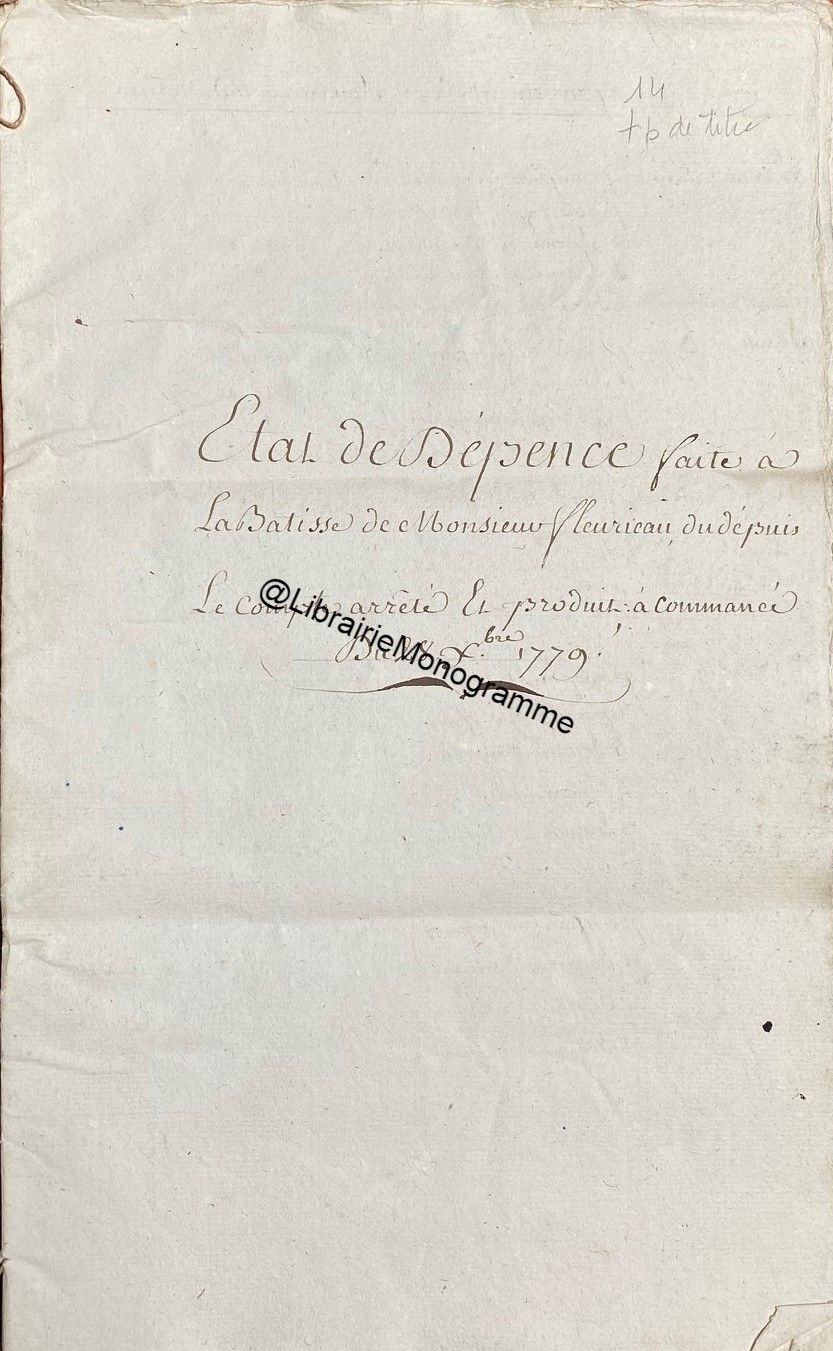 14
+ p de titre
Etat de Dépence faite à
La Batisse de Monsieur fleurieau, du dépuis
Le compte arrêté Et produit à commancé
Du X.bre 1779.
@LibrairieMonogramme